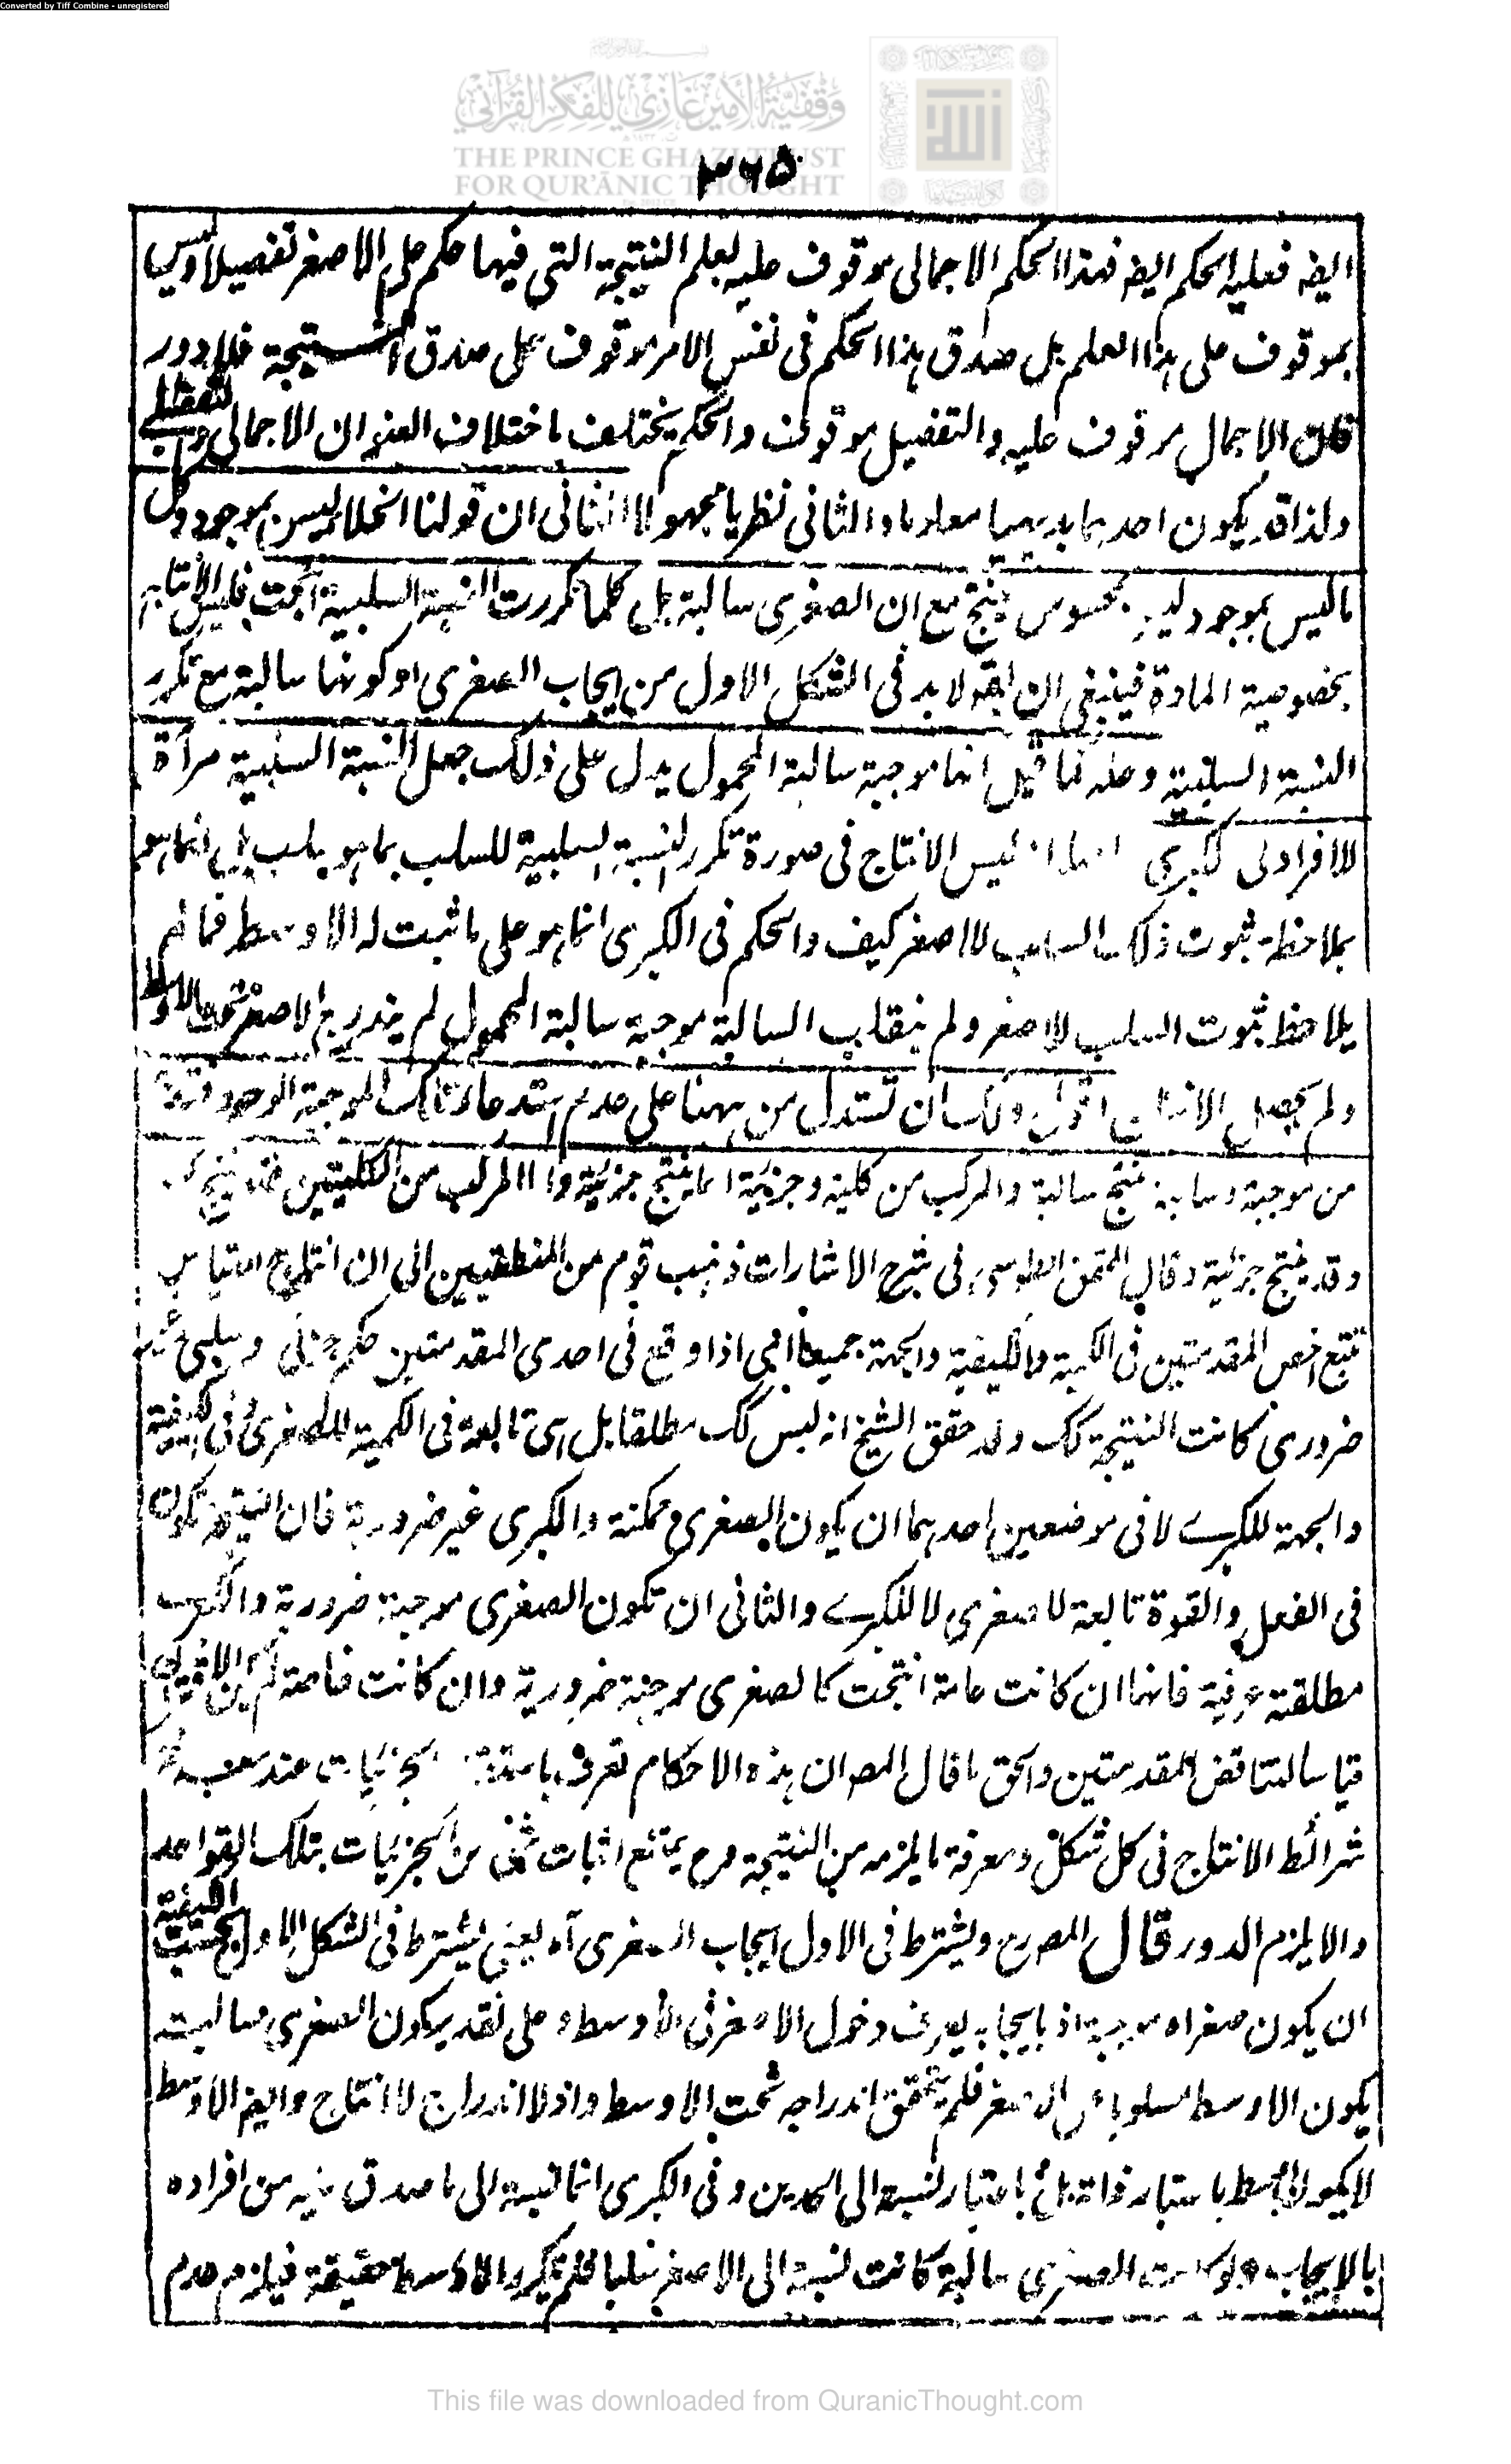 Converted by Tiff Combine - unregistered
وقفية الأمير غازي للفكر القرآني
THE PRINCE GHAZI TRUST
FOR QUR'ĀNIC THOUGHT
٣٦٥
ايضه فعليه الحكم ايضه فهذا الحكم الاجمالى موقوف عليه لعلم النتيجة التى فيها حكم على الاصغر تفصيلا وليس
بموقوف على هذا العلم بل صدق هذا الحكم فى نفس الامر موقوف على صدق النتيجة فلا دور
فان الاجمال موقوف عليه والتفصيل موقوف والحكم يختلف باختلاف العنوان الاجمالى والتفصيلى
ولذا قد يكون احدهما بديهيا معلوما والثانى نظريا مجهولا الثانى ان قولنا الخلاء ليس بموجود وكل
ما ليس بموجود ليس بمحسوس ينتج مع ان الصغرى سالبة بل كلما تكررت النسبة السلبية انتجت فليس الانتاج
بخصوصية المادة فينبغى ان يقه لا بد فى الشكل الاول من ايجاب الصغرى او كونها سالبة مع تكرر
النسبة السلبية وحله كما قيل انها موجبة سالبة المحمول يدل على ذلك جعل النسبة السلبية مرآة
للافراد فى الكبرى ليس الانتاج فى صورة تكرر النسبة السلبية للسلب بما هو سلب بل انما هو
بملاحظة ثبوت ذلك السلب للاصغر كيف والحكم فى الكبرى انما هو على ما ثبت له الاوسط فما لم
يلاحظ ثبوت السلب للاصغر ولم ينقلب السالبة موجبة سالبة المحمول لم يندرج الاصغر تحت الاوسط
ولم يحصل الانتاج اقول ولك ان تستدل من ههنا على عدم استدعاء تلك الموجبة الوجود
من موجبة وسالبة ينتج سالبة والمركب من كلية وجزئية انما ينتج جزئية واما المركب من الكليتين فقد ينتج
وقد ينتج جزئية وقال المحقق الطوسى فى شرح الاشارات ذهب قوم من المنطقيين الى ان انتاج القياس
تتبع اخس المقدمتين فى الكمية والكيفية والجهة جميعا اى اذا وقع فى احدى المقدمتين حكم جزئى وسلبى
ضرورى كانت النتيجة كك وقد حقق الشيخ انه ليس كك مطلقا بل هى تابعة فى الكمية للصغرى وفى الكيفية
والجهة للكبرے لا فى موضعين احدهما ان يكون الصغرى ممكنة والكبرى غير ضرورية فان النتيجة تكون
فى الفعل والقوة تابعة للصغرى لا للكبرے والثانى ان تكون الصغرى موجبة ضرورية والكبرى
مطلقة عرفية فانها ان كانت عامة انتجت كالصغرى موجبة ضرورية وان كانت خاصة لم يكن
قياسا لتناقض المقدمتين والحق ما قال المصه ان هذه الاحكام تعرف الجزئيات عند
شرائط الانتاج فى كل شكل ومعرفة ما يلزمه من النتيجة وح يمتنع اثبات شئ من الجزئيات بتلك القواعد
والا يلزم الدور قال المصه رح ويشترط فى الاول ايجاب الصغرى آه يعنى يشترط فى الشكل الاول بحسب الكيفية
ان يكون صغراه موجبة اذ بايجابه يعرف دخول الاصغر فى الاوسط وعلى تقدير كون الصغرى سالبة
يكون الاوسط مسلوبا عن الاصغر فلم يتحقق اندراجه تحت الاوسط واذ لا اندراج لا انتاج وايضه الاوسط
لا يكون باعتبار ذاته بل باعتبار نسبته الى الحدين وفى الكبرى انما نسبته الى ما صدق عليه من افراده
بالايجاب ولو كانت الصغرى سالبة كانت نسبته الى الاصغر سلبا فلم يتكرر الاوسط حقيقة فيلزم عدم
This file was downloaded from QuranicThought.com